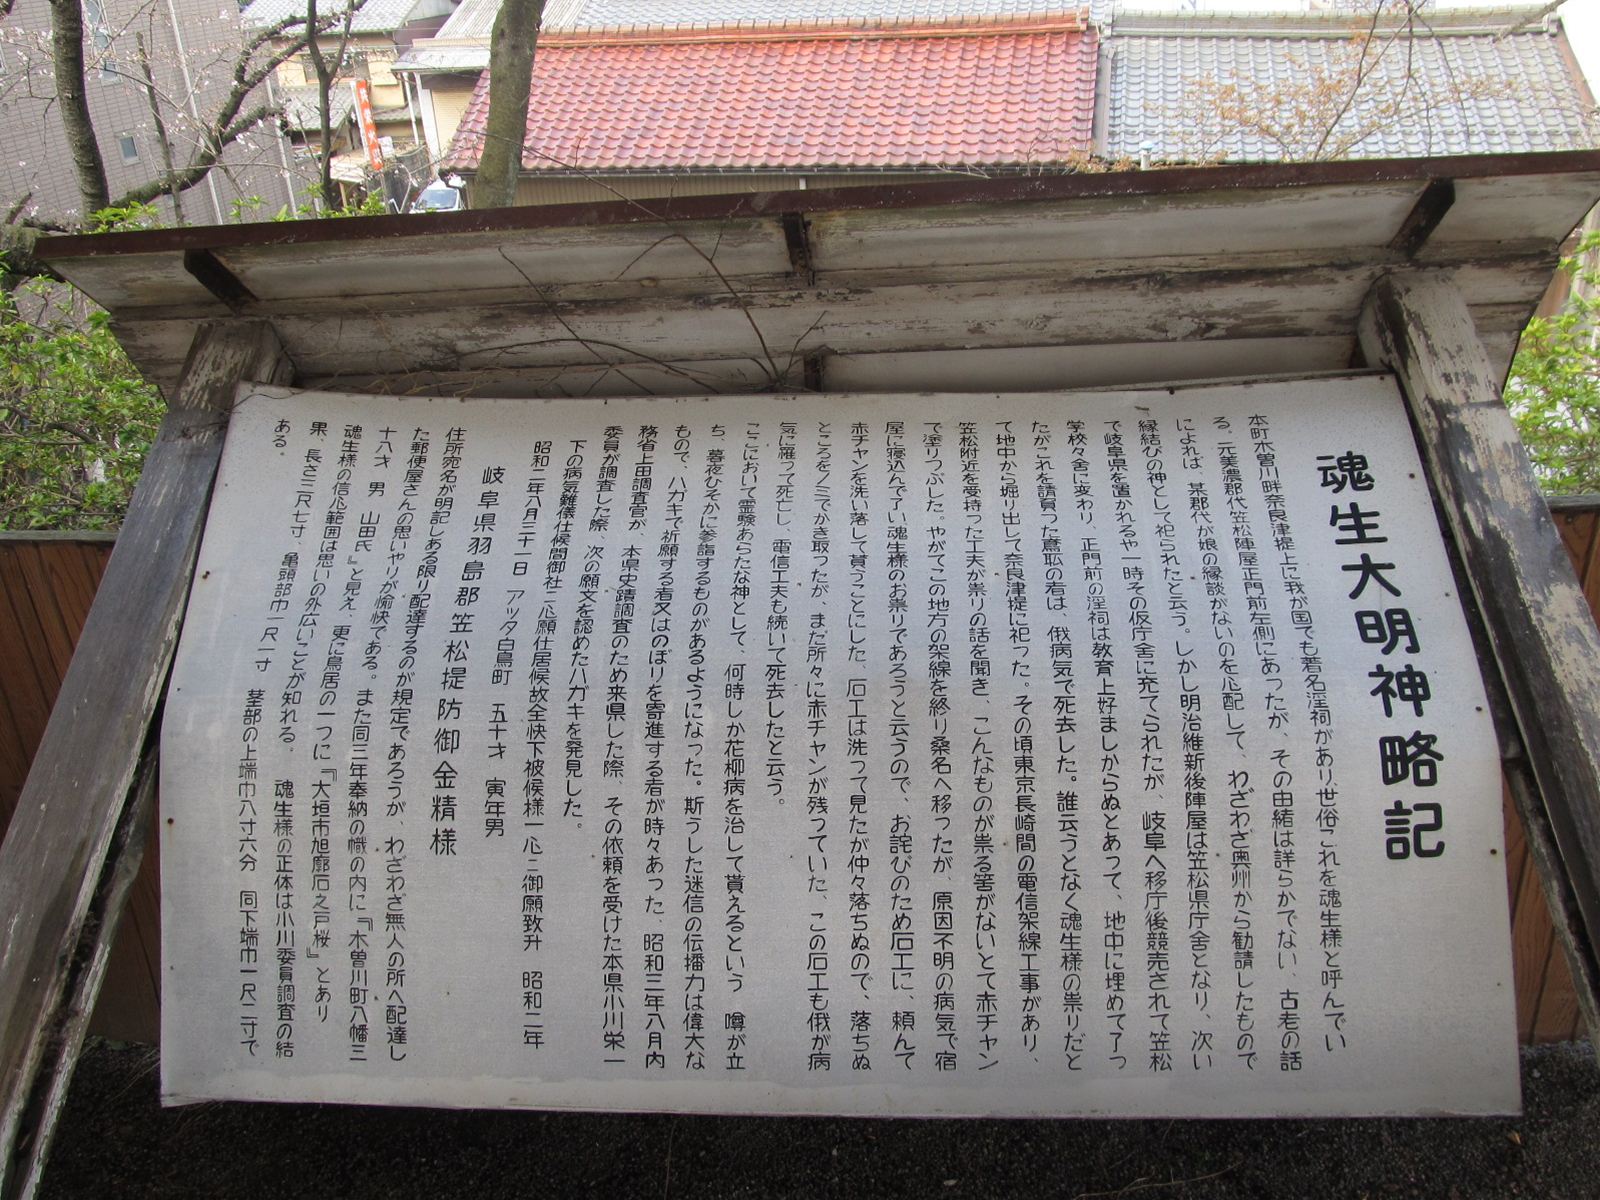 魂生大明神略記
本町木曽川畔奈良津堤上に我が国でも著名淫祠があり世俗これを魂生様と呼んでい
る。元美濃郡代笠松陣屋正門前左側にあったが、その由緒は詳らかでない、古老の話
によれば、某郡代が娘の縁談がないのを心配して、わざわざ奥州から勧請したもので
縁結びの神として祀られたと云う。しかし明治維新後陣屋は笠松県庁舎となり、次い
で岐阜県を置かれるや一時その仮庁舎に充てられたが、岐阜へ移庁後競売されて笠松
学校々舎に変わり、正門前の淫祠は教育上好ましからぬとあって、地中に埋めて了っ
たがこれを請負った鳶職の者は、俄病気で死去した。誰云うとなく魂生様の祟りだと
て地中から堀り出して奈良津堤に祀った。その頃東京長崎間の電信架線工事があり、
笠松附近を受持った工夫が祟りの話を聞き、こんなものが祟る筈がないとて赤チャン
で塗りつぶした。やがてこの地方の架線を終り桑名へ移ったが、原因不明の病気で宿
屋に寝込んで了い魂生様のお祟りであろうと云うので、お詫びのため石工に、頼んで
赤チャンを洗い落して貰うことにした、石工は洗って見たが仲々落ちぬので、落ちぬ
ところをノミでかき取ったが、まだ所々に赤チャンが残っていた、この石工も俄が病
気に羅って死亡し、電信工夫も続いて死去したと云う。
ここにおいて霊験あらたな神として、何時しか花柳病を治して貰えるという　噂が立
ち、暮夜ひそかに参詣するものがあるようになった。斯うした迷信の伝播力は偉大な
もので、ハガキで祈願する者又はのぼりを寄進する者が時々あった、昭和三年八月内
務省上田調査官が、本県史蹟調査のため来県した際、その依頼を受けた本県小川栄一
委員が調査した際、次の願文を認めたハガキを発見した。
下の病気難儀仕候間御社ニ心願仕居候故全快下被候様一心ニ御願致升　昭和二年
昭和二年八月三十一日　アッタ白鳥町　五十才　寅年男
岐阜県羽島郡笠松堤防御金精様
住所宛名が明記しある限り配達するのが規定であろうが、わざわざ無人の所へ配達し
た郵便屋さんの思いやりが愉快である。また同三年奉納の幟の内に『木曽川町八幡三
十八才　男　山田氏』と見え、更に鳥居の一つに『大垣市旭廓石之戸桜』とあり
魂生様の信心範囲は思いの外広いことが知れる。　魂生様の正体は小川委員調査の結
果、長さ三尺七寸、亀頭部巾一尺一寸　茎部の上端巾八寸六分　同下端巾一尺二寸で
ある。